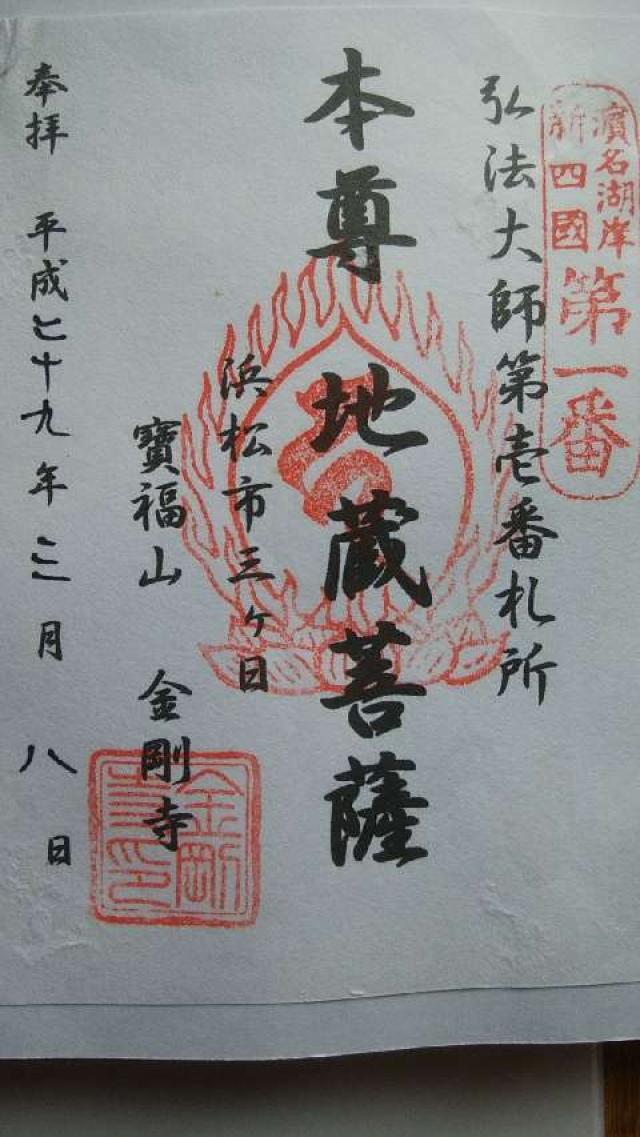 濱名湖岸
新四國
第一番
弘法大師第壱番札所
本尊 地蔵菩薩
浜松市三ヶ日
寶福山 金剛寺
金剛
寺印
奉拝 平成二十九年三月八日